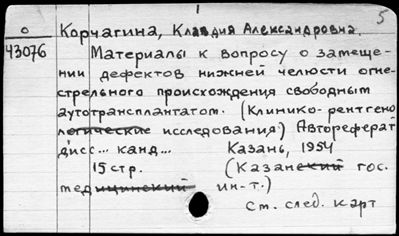 5
О Корчагина, Клавдия Александровна.
43076 Материалы к вопросу о замеще-
нии дефектов нижней челюсти огне-
стрельного происхождения свободным
аутотрансплантатом. (Клинико-рентгено
логические исследования) Автореферат
дисс... канд... Казань, 1954
15 стр. (Казанский гос.
медицинский ин-т.)
См. след. карт